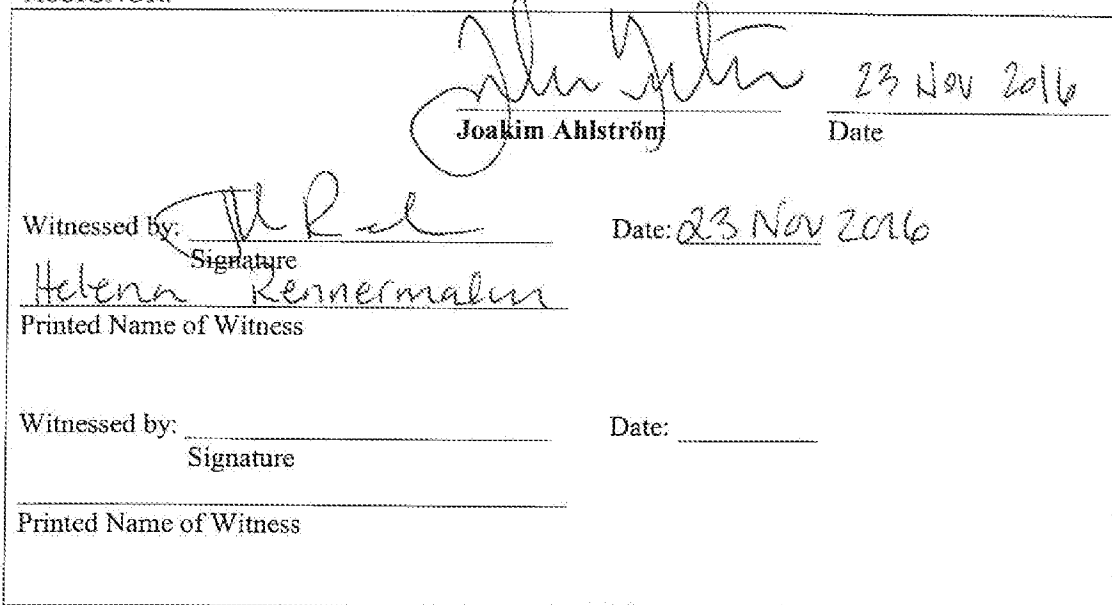 23 Nov 2016
Joakim Ahlström Date
Witnessed by: Date: 23 Nov 2016
Signature
Helena Rennermalm
Printed Name of Witness
Witnessed by: Date:
Signature
Printed Name of Witness